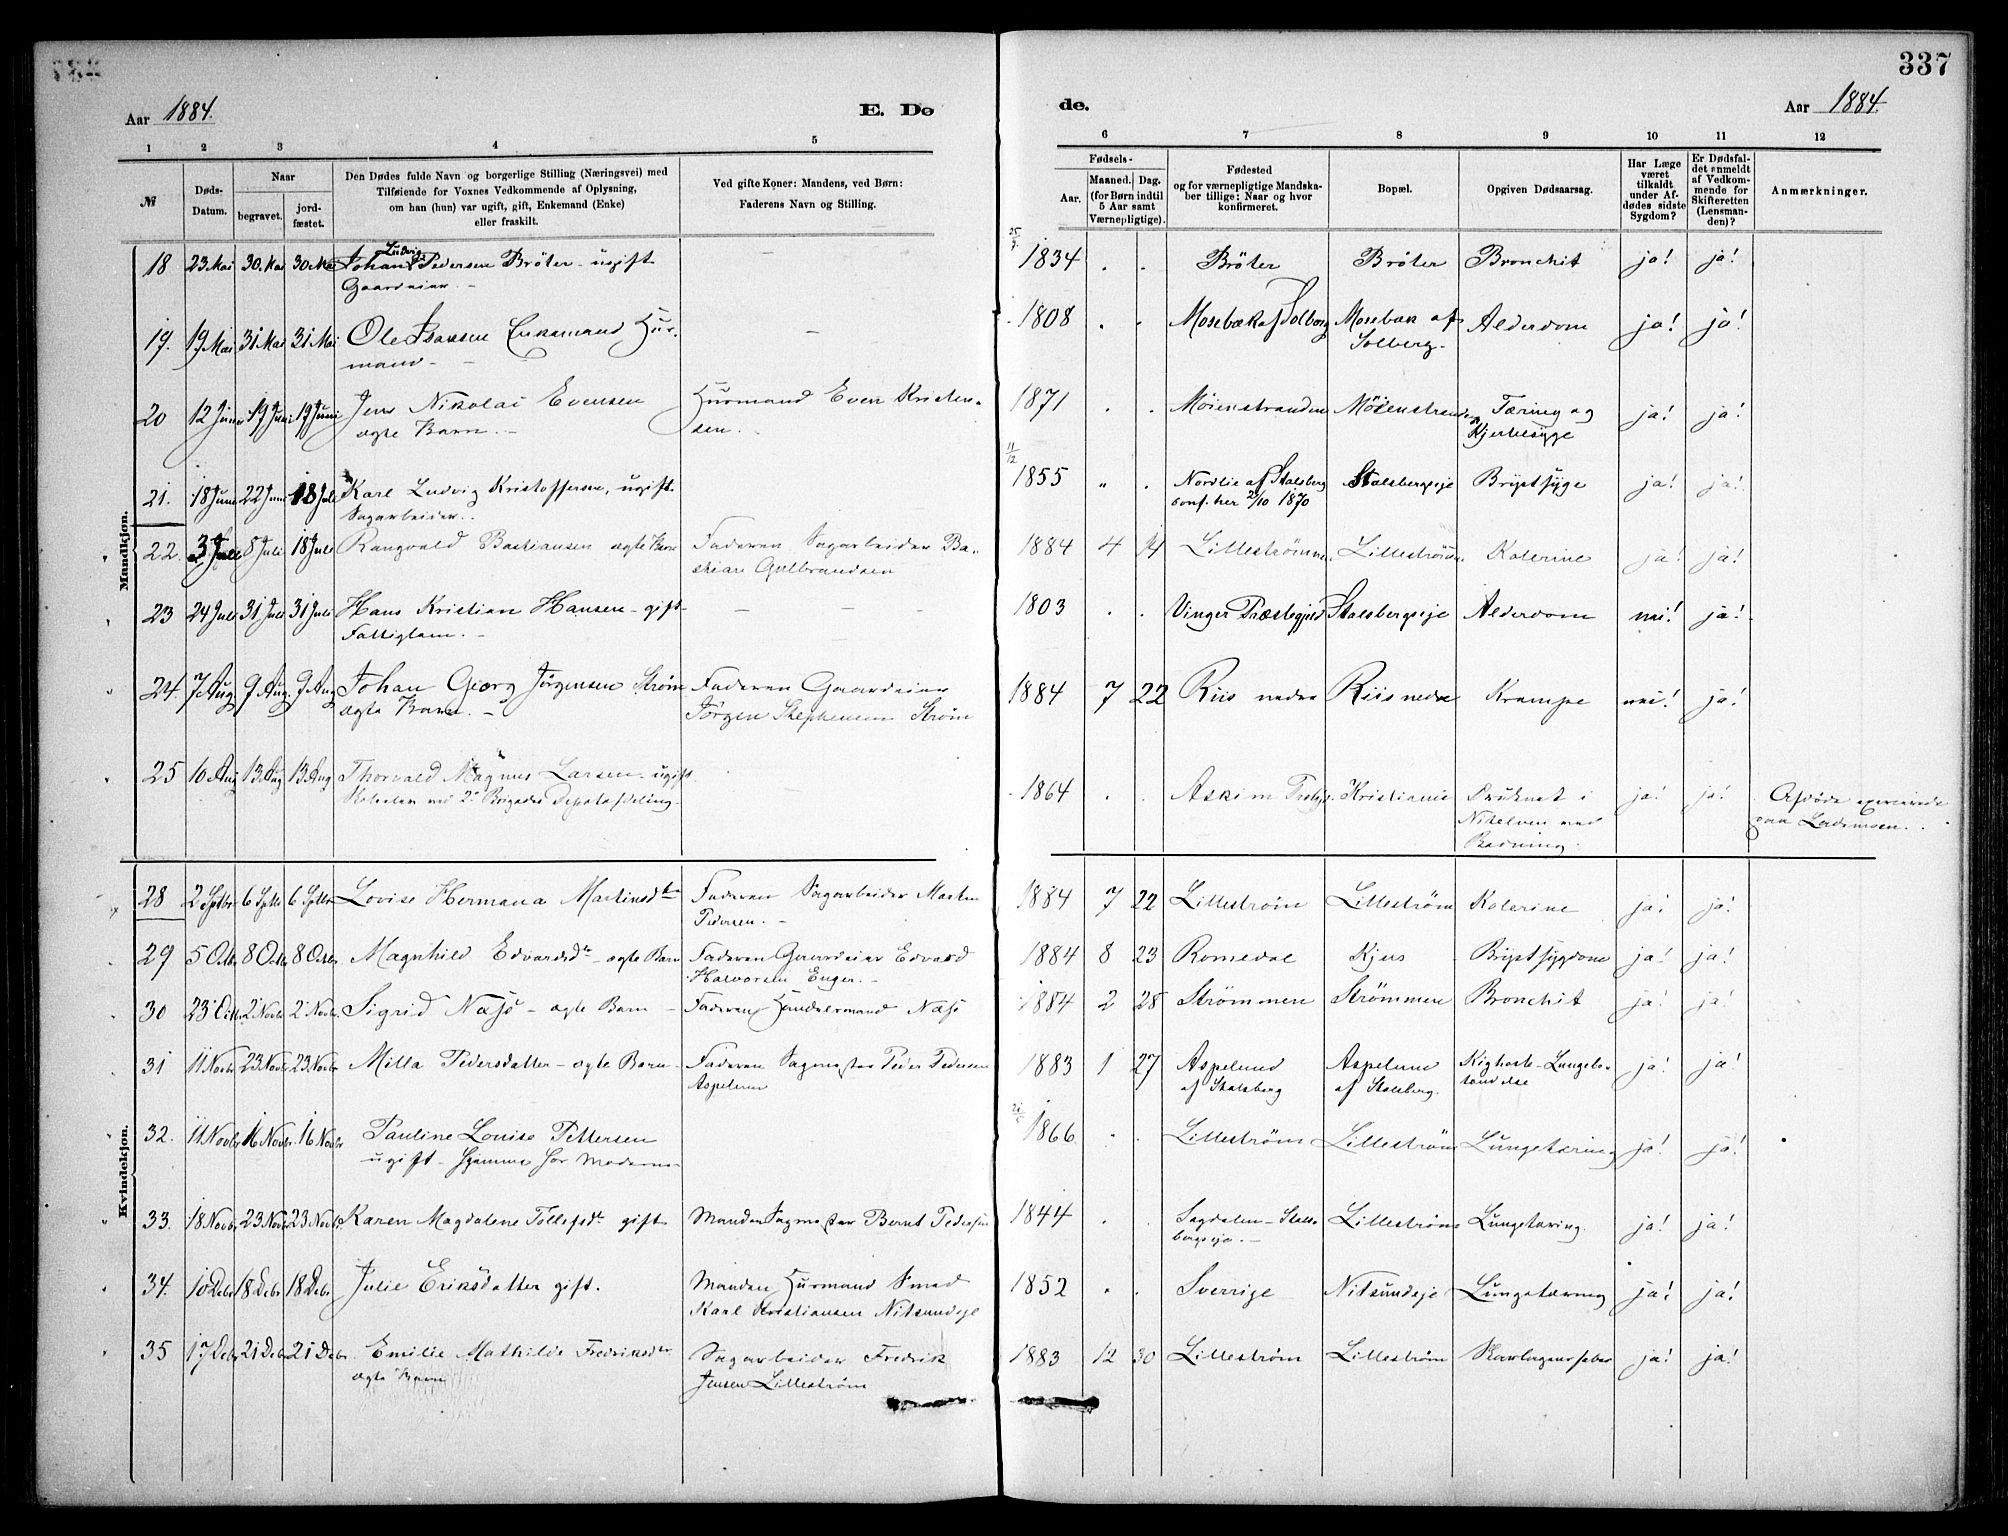 337
Aar 1884.
E. Dø
de.
Aar 1884.
1 2 3 4 5 6 7 8 9 10 11 12
№
Døds-Datum.
Naar
begravet.
jord-fæstet.
Den Dødes fulde Navn og borgerlige Stilling (Næringsvei) med
Tilføiende for Voxnes Vedkommende af Oplysning,
om han (hun) var ugift, gift, Enkemand (Enke)
eller fraskilt.
Ved gifte Koner: Mandens, ved Børn:
Faderens Navn og Stilling.
Fødsels-
Aar.
Maaned. Dag.
(for Børn indtil
5 Aar samt
Værnepligtige).
Fødested
og for værnepligtige Mandska-
ber tillige: Naar og hvor
konfirmeret.
Bopæl.
Opgiven Dødsaarsag.
Har Læge
været
tilkaldt
under Af-
dødes sidste
Sygdom?
Er Dødsfal-
det anmeldt
af Vedkom-
mende for
Skifteretten
(Lensman-
den)?
Anmærkninger.
Mandkjøn.
18 23 Mai 30. Mai 30. Mai Johan Ludvig Pedersen Bröter - ugift - 25/9 1834 . . Bröter Bröter Bronchit ja! ja!
Gaardeier. -
19. 19 Mai 31 Mai 31 Mai Ole Isaksen Enkemand Hus- - 1808 . . Mosebæk af Solberg Mosebæk af Alderdom ja! ja!
mand - - Solberg.
20 12 Juni 19 Juni 19 Juni Jens Nikolai Evensen Husmand Even Kristen- 1871 . . Möienstranden Möienstranden Tæring og ja! ja!
ægte Barn. - sen. Hjertesyge
21. 18 Juni 22 Juni 18 Juli Karl Ludvig Kristoffersen, ugift 11/12 1855 " Nordlie af Stalsberg Stalsbergeje Brystsyge ja! ja!
Sagarbeider. conf. her 2/10 1870
22. 3 Juli 8 Juli 18 Juli Rangvald Bastiansen ægte Barn Faderen Sagarbeider Ba- 1884 4 14 Lilleströmmen Lilleströmmen Kolerine ja! ja!
stian Gulbrandsen
23 24 Juli 31 Juli 31 Juli Hans Kristian Hansen - gift - - - 1803 . . Vinger Præstegjeld Stalsbergeje Alderdom nei! ja!
Fattiglem. -
24. 7 Aug 9 Aug. 9 Aug Johan Georg Jörgensen Ström Faderen Gaardeier 1884 7 22 Riis nedre Riis nedre Krampe nei! ja!
ægte Barn. - Jörgen Stephensen Ström
25 10 Aug 13 Aug 13 Aug Thorvald Magnus Larsen - ugift - 1864 . . Askim Kristiania Druknet i ja! ja! Afdöde exercerede
ved 2 Brigades Depotafdeling. Nitelven ved paa
Badning.
Kvindekjøn.
28 2 Sptbr 6 Sptbr 6 Sptbr Lovise Hermana Martinsdtr Faderen Sagarbeider Martin 1884 7 22 Lilleström Lilleström Kolerine ja! ja!
Pedersen. -
29 5 Octbr 8 Octbr 8 Octbr Magnhild Edvardsdtr - ægte Barn Faderen Gaardeier Edvard 1884 8 23 Romedal Kjus Brystsygdom ja! ja!
Halvorsen Enger. -
30 23 Octbr 2 Novbr 2 Novbr. Sigrid Næss - ægte Barn - Faderen Handelsmand Næss 1884 2 28 Strömmen Strömmen Bronchit ja! ja!
31 11. Novbr 23. Novbr 23. Novbr Milla Pedersdatter - ægte Barn - Faderen Sagmester Peder Pedersen 1883 1 27 Aspelund Aspelund Kighoste - Lungebe- ja! ja!
Aspelund af Stalsberg af Stalsberg. tændelse
32. 11. Novbr 16 Novbr. 16 Novbr Pauline Louise Pettersen 1866 . . Lilleström Lilleström Lungetæring ja! ja!
ugift - hjemme hos Moderen -
33. 18 Novbr 23 Novbr 23 Novbr Karen Magdalene Tollefsdtr gift Manden Sagmester Bernt Pedersen 1844 . . Sagdalen - Stals- Lilleström Lungetæring. ja! ja!
bergeje. -
34. 10 Debr 18 Debr 18 Debr. Julie Eriksdatter gift. Manden Husmand Smed 1852 . . Sverrige Nitsundeje Lungetæring ja! ja!
Karl Kristiansen Nitsundeje
35 17 Debr 21 Debr 21 Debr. Emilie Mathilde Fredriksdtr Sagarbeider Fredrik 1883 12 30 Lilleström Lilleström Skarlagensfeber ja! ja!
ægte Barn Jensen Lilleström